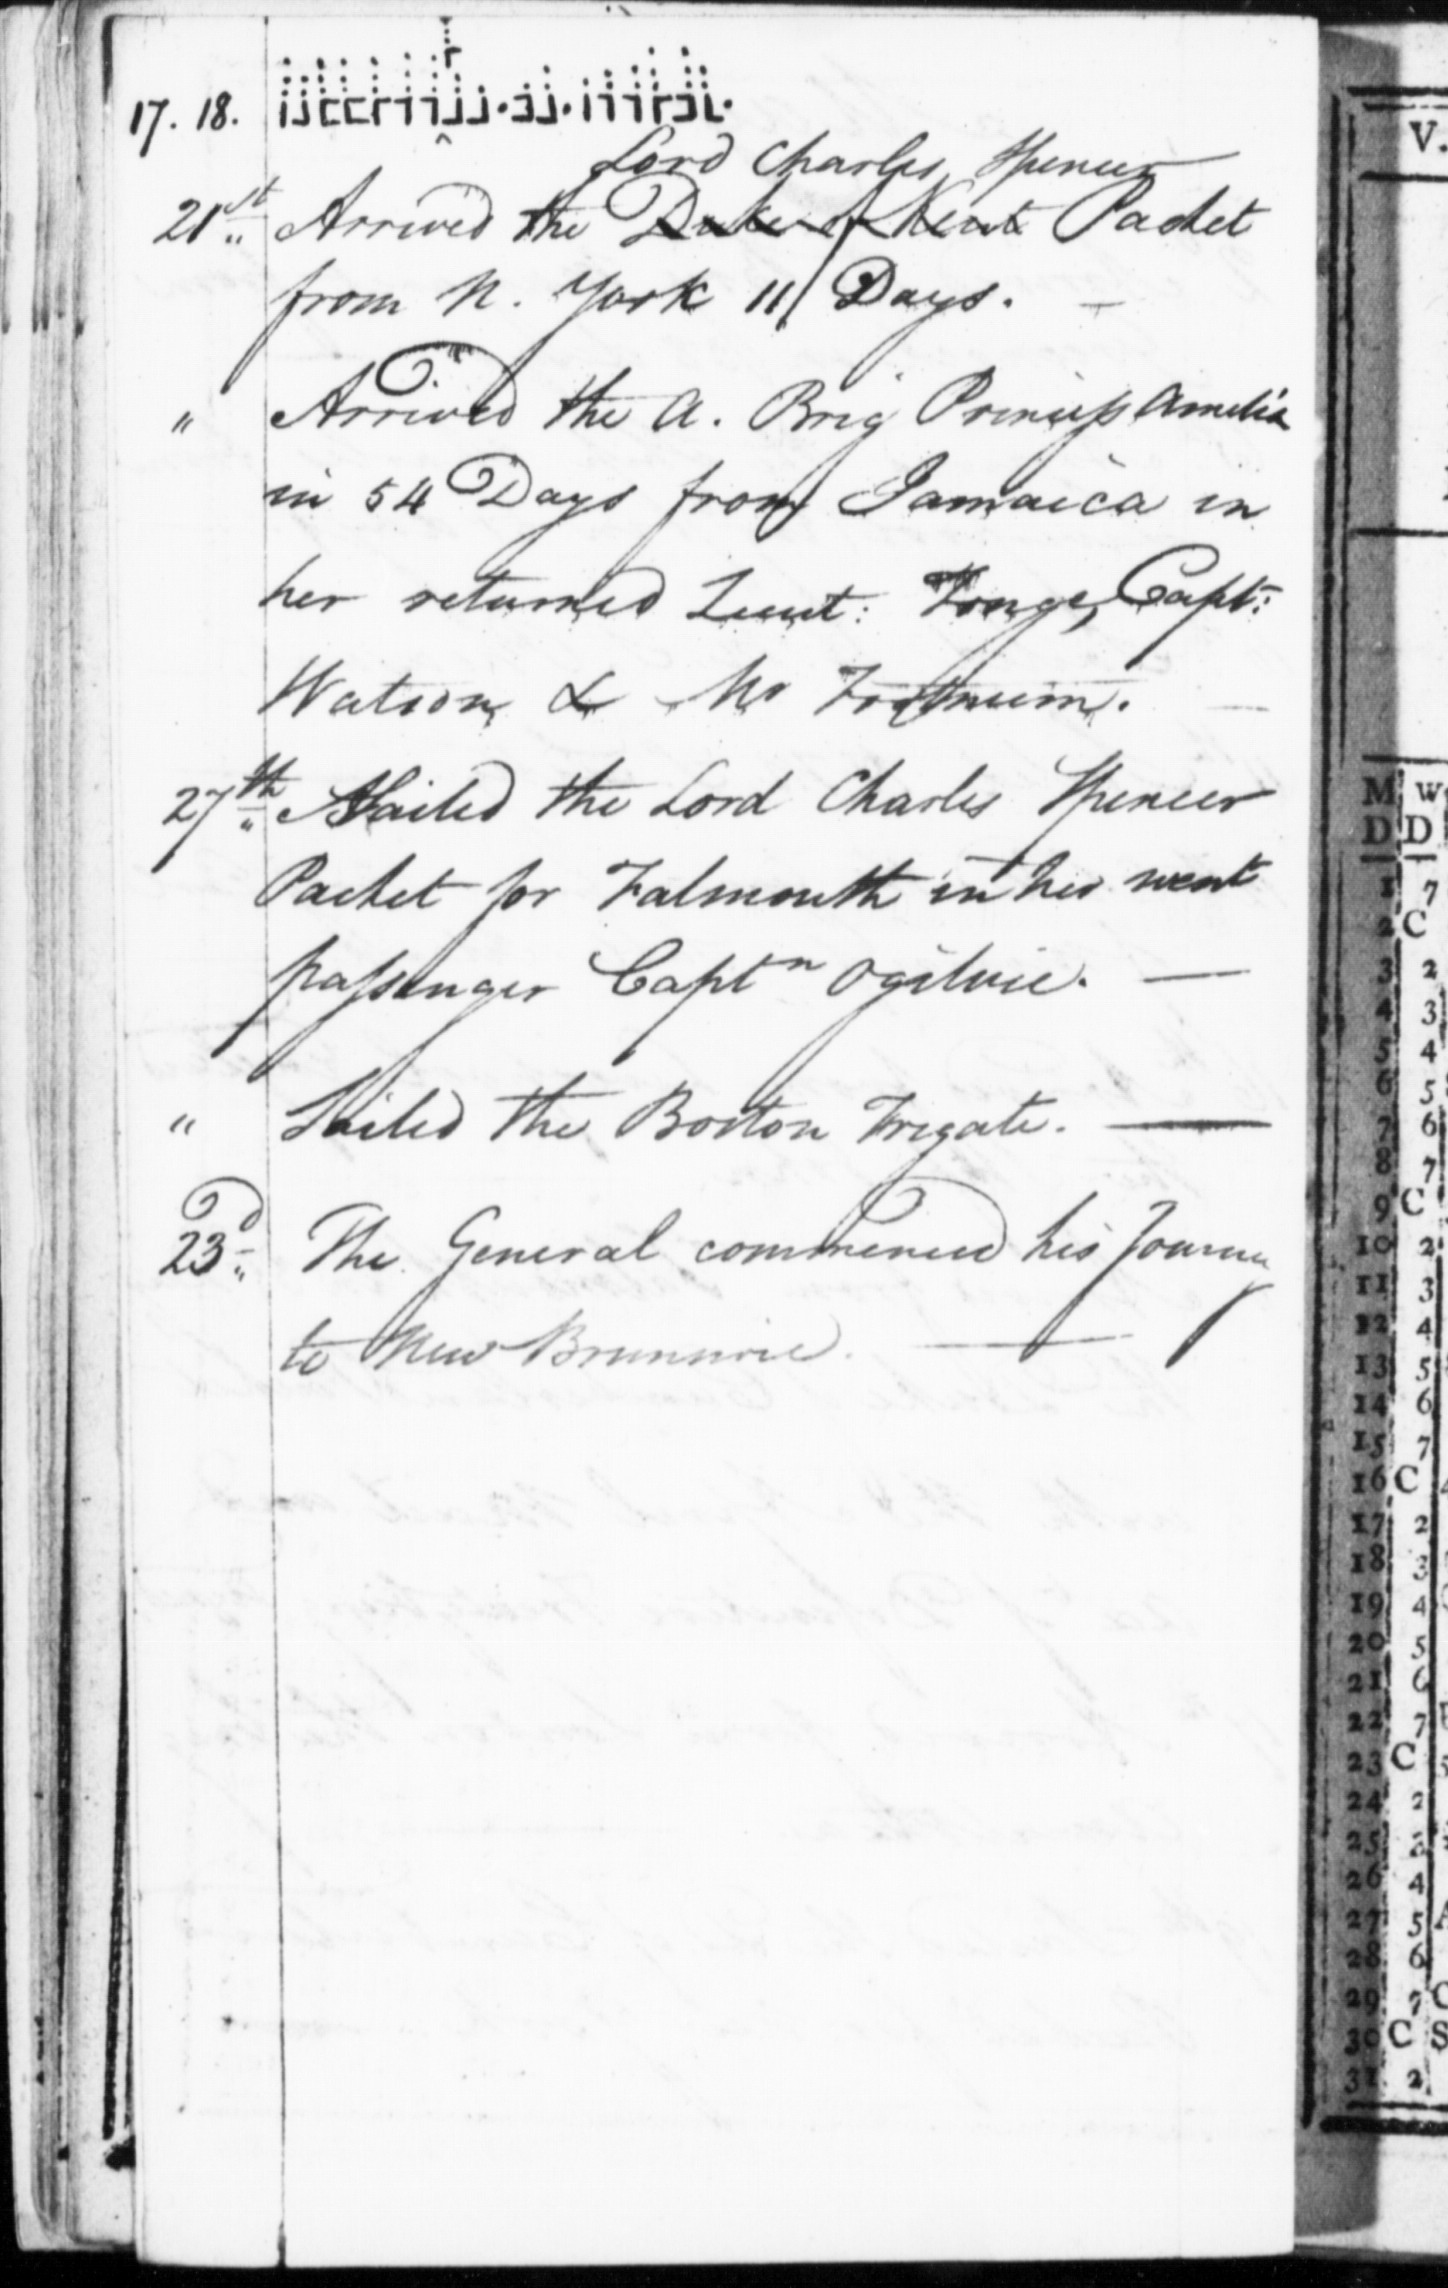 17. 18.
Lord Charles Spencer
21st Arrived the Duke of Kent Packet
from N. York 11 Days. —
" Arrived the A. Brig Princess Amelia
in 54 Days from Jamaica in
her returned Lieut: Tonge, Capt:
Watson & Mr Fortnum. —
27th Sailed the Lord Charles Spencer
Packet for Falmouth in her went
passenger Captn Ogilvie. —
" Sailed the Boston Frigate. —
23d The General commenced his Journey
to New Brunswic. —
V.
M W
D D
1 7
2 C
3 2
4 3
5 4
6 5
7 6
8 7
9 C
10 2
11 3
12 4
13 5
14 6
15 7
16 C
17 2
18 3
19 4
20 5
21 6
22 7
23 C
24 2
25 3
26 4
27 5
28 6
29 7
30 C S
31 2